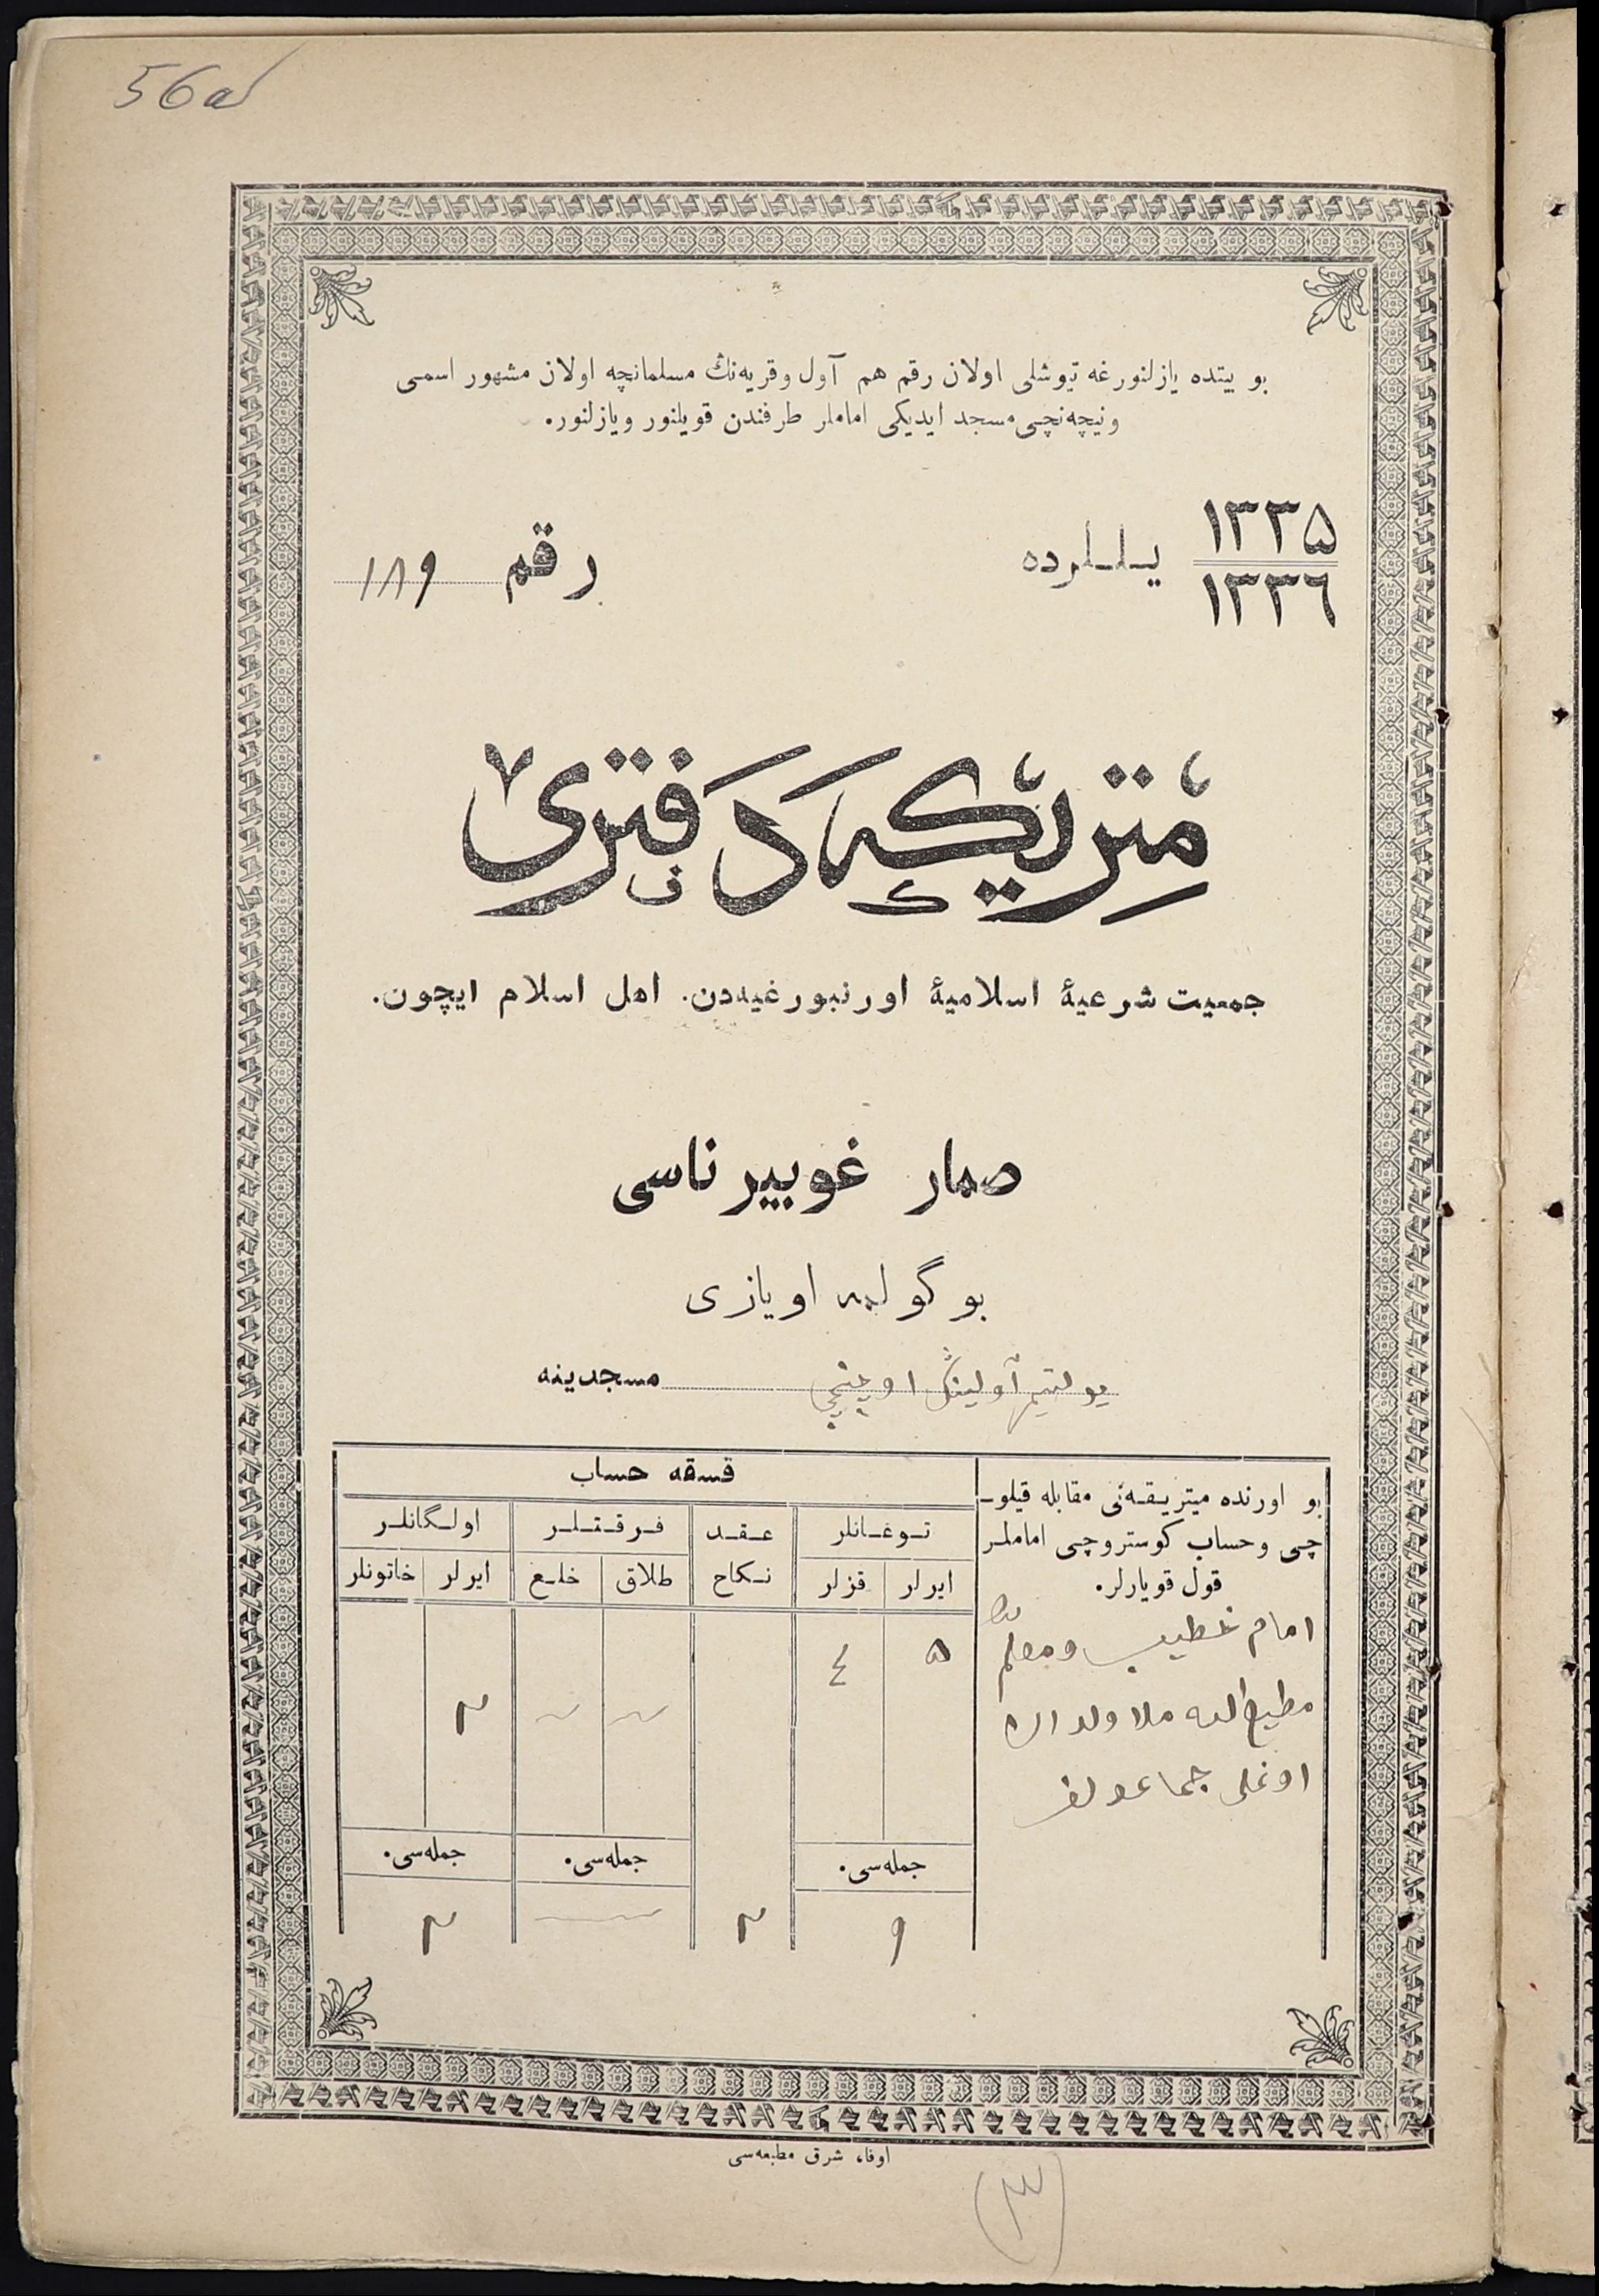 56а
بو بيتده يازلنورغه تيوشلی اولان رقم هم آول وقريه‌نڭ مسلمانچه اولان مشهور اسمی
ونيچه‌نچی مسجد ايديكی اماملر طرفندن قويلنور ويازلنور.
١٣٣٥
١٣٣٦
يللرده
رقم ١٨٩
مٔتريكه دفتری
جمعيت شرعيۀ اسلاميۀ اورنبورغيه‌دن. اهل اسلام ايچون.
صمار غوبيرناسی
بوگولمه اويازی
يولتيمر آولينڭ اوچنچی مسجدينه
بو اورنده ميتريقه‌نی مقابله قيلو-
چی وحساب كوستروچی اماملر
قول قويارلر.
امام خطيب ومعلم
مطيع الله ملا ولدان
اوغلی جماعولف
قسقه حساب
توغانلر
عقد نكاح
فرقتلر
اولگانلر
ايرلر
قزلر
طلاق
خلع
ايرلر
خاتونلر
٥
٤
٢
جمله‌سی.
جمله‌سی.
جمله‌سی.
٩
٢
٢
اوفا، شرق مطبعه‌سی
(٣)